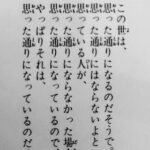 この世は、
思った通りになるのだそうで。
思った通りにはならないよと
思っている人が、
思った通りにならなかった場
思った通りになっているので
やっぱりそれは、
思った通りになっているのだ